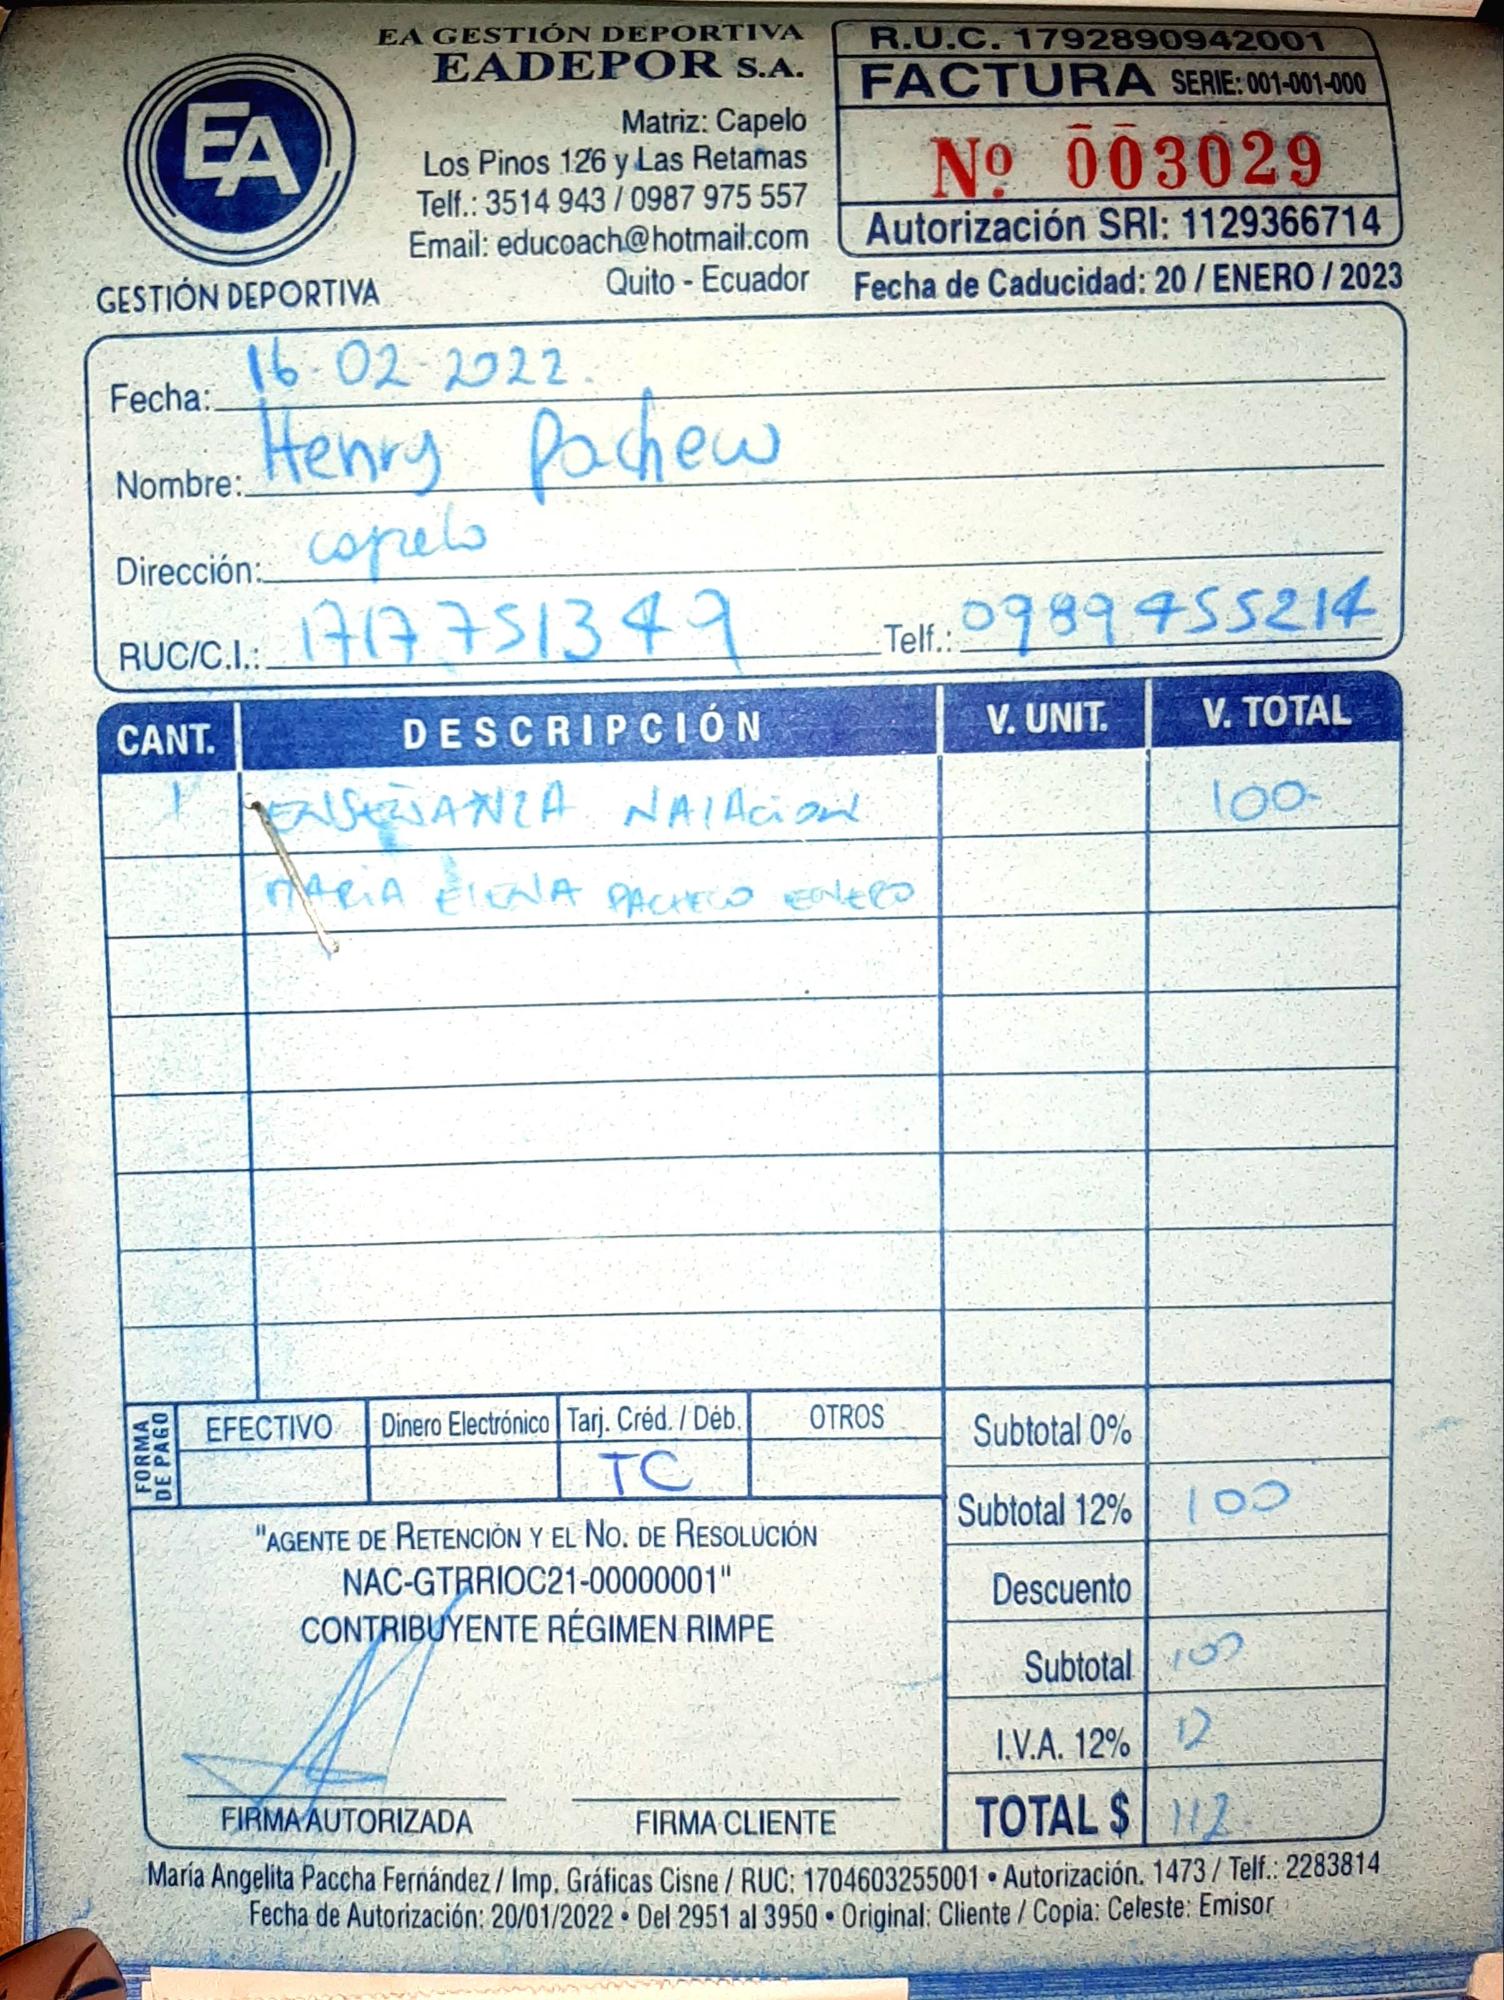 EA GESTIÓN DEPORTIVA
EADEPOR S.A.
EA
GESTIÓN DEPORTIVA
Matriz: Capelo
Los Pinos 126 y Las Retamas
Telf.: 3514 943 / 0987 975 557
Email: educoach@hotmail.com
Quito - Ecuador
R.U.C. 1792890942001
FACTURA SERIE: 001-001-000
Nº 003029
Autorización SRI: 1129366714
Fecha de Caducidad: 20 / ENERO / 2023
Fecha: 16-02-2022.
Nombre: Henry Pacheco
Dirección: capelo
RUC/C.I.: 1717751349 Telf.: 0989455214
CANT. DESCRIPCIÓN V. UNIT. V. TOTAL
1 ENSEÑANZA NATACION 100-
MARIA ELENA PACHECO ENERO
FORMA DE PAGO
EFECTIVO Dinero Electrónico Tarj. Créd. / Déb. OTROS
TC
Subtotal 0%
Subtotal 12% 100
Descuento
Subtotal 100
I.V.A. 12% 12
TOTAL $ 112
"AGENTE DE RETENCIÓN Y EL NO. DE RESOLUCIÓN
NAC-GTRRIOC21-00000001"
CONTRIBUYENTE RÉGIMEN RIMPE
FIRMA AUTORIZADA FIRMA CLIENTE
María Angelita Paccha Fernández / Imp. Gráficas Cisne / RUC: 1704603255001 • Autorización. 1473 / Telf.: 2283814
Fecha de Autorización: 20/01/2022 • Del 2951 al 3950 • Original: Cliente / Copia: Celeste: Emisor